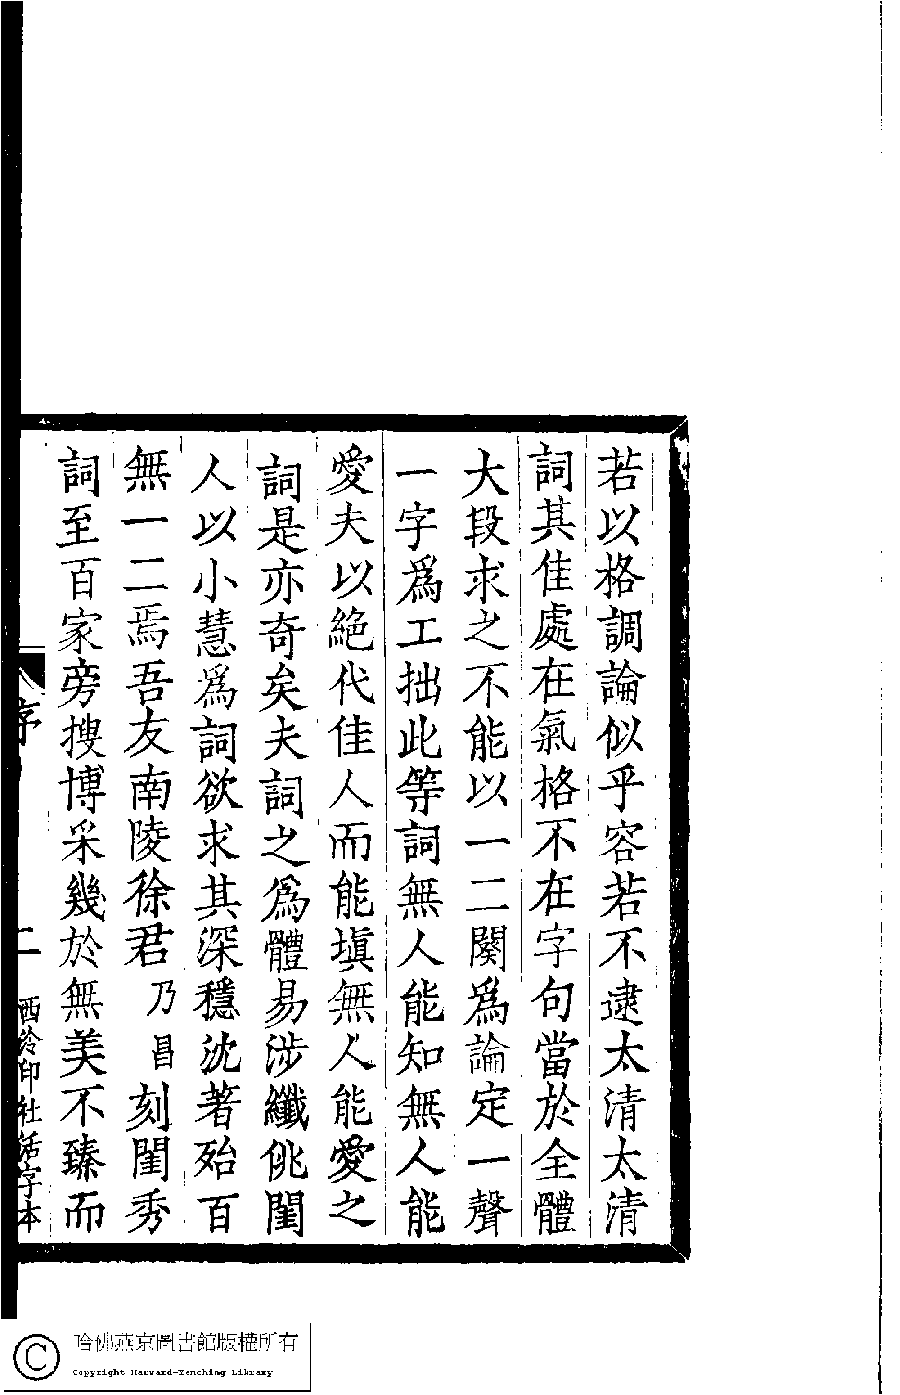 若以格調論似乎容若不逮太清太清
詞其佳處在氣格不在字句當於全體
大段求之不能以一二闋爲論定一聲
一字爲工拙此等詞無人能知無人能
愛夫以絕代佳人而能塡無人能愛之
詞是亦奇矣夫詞之爲體易涉纖佻閨
人以小慧爲詞欲求其深穩沈著殆百
無一二焉吾友南陵徐君乃昌刻閨秀
詞至百家旁搜博采幾於無美不臻而
序
二
西泠印社活字本
哈佛燕京圖書館版權所有
Copyright Harvard-Yenching Library